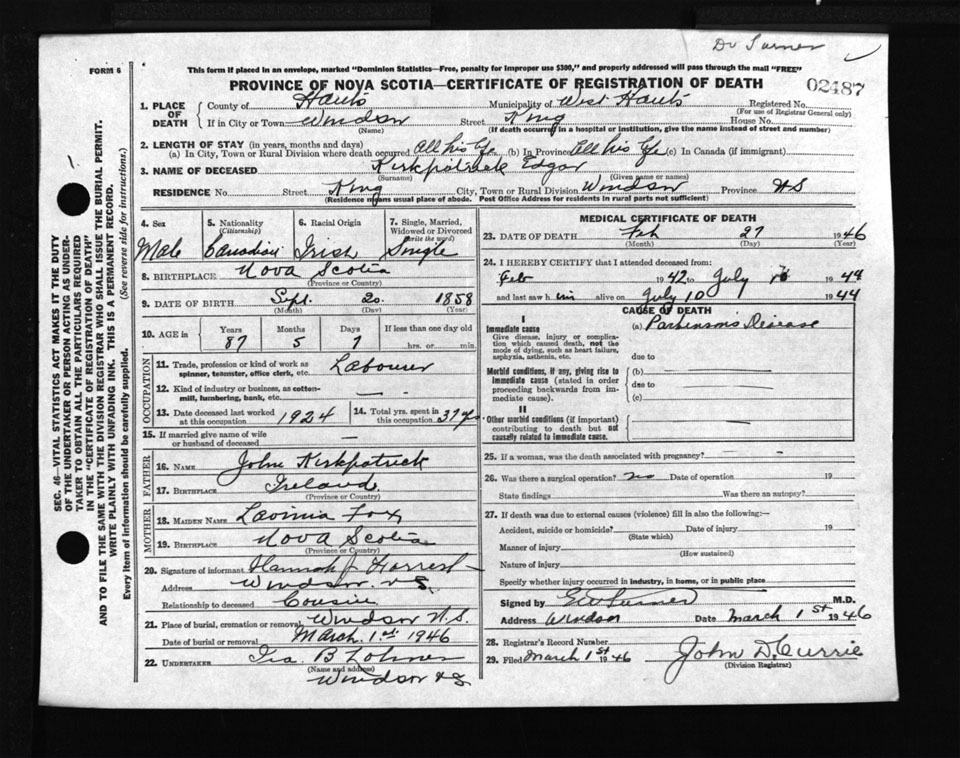 Dr Turner
FORM 6
This form if placed in an envelope, marked "Dominion Statistics—Free, penalty for improper use $300," and properly addressed will pass through the mail "FREE"
PROVINCE OF NOVA SCOTIA—CERTIFICATE OF REGISTRATION OF DEATH
02487
1. PLACE OF DEATH
County of Hants Municipality of West Hants Registered No.
(For use of Registrar General only)
If in City or Town Windsor Street King House No.
(Name) (If death occurred in a hospital or institution, give the name instead of street and number)
2. LENGTH OF STAY (in years, months and days)
(a) In City, Town or Rural Division where death occurred All his life (b) In Province All his life (c) In Canada (if immigrant)
3. NAME OF DECEASED Kirkpatrick Edgar
(Surname) (Given name or names)
RESIDENCE No. Street King City, Town or Rural Division Windsor Province NS
(Residence means usual place of abode. Post Office Address for residents in rural parts not sufficient)
4. Sex
Male
5. Nationality
(Citizenship)
Canadian
6. Racial Origin
Irish
7. Single, Married,
Widowed or Divorced
(write the word)
Single
8. BIRTHPLACE Nova Scotia
(Province or Country)
9. DATE OF BIRTH Sept. 20 1858
(Month) (Day) (Year)
10. AGE in
Years Months Days If less than one day old
87 5 7 hrs. or min.
OCCUPATION
11. Trade, profession or kind of work as
spinner, teamster, office clerk, etc. Labourer
12. Kind of industry or business, as cotton-
mill, lumbering, bank, etc. —
13. Date deceased last worked
at this occupation 1924
14. Total yrs. spent in
this occupation 37 yrs
15. If married give name of wife
or husband of deceased —
FATHER
16. NAME John Kirkpatrick
17. BIRTHPLACE Ireland
(Province or Country)
MOTHER
18. MAIDEN NAME Lavinia Fox
19. BIRTHPLACE Nova Scotia
(Province or Country)
20. Signature of informant Hannah J Forrest
Address Windsor N.S.
Relationship to deceased Cousin
21. Place of burial, cremation or removal Windsor N.S.
Date of burial or removal March 1st 1946
22. UNDERTAKER Ira B Lohnes
(Name and address)
Windsor NS
MEDICAL CERTIFICATE OF DEATH
23. DATE OF DEATH Feb 27 1946
(Month) (Day) (Year)
24. I HEREBY CERTIFY that I attended deceased from:
Feb 1942 to July 10 1944
and last saw him alive on July 10 1944
CAUSE OF DEATH
I
Immediate cause (a) Parkinson's Disease
Give disease, injury or complica-
tion which caused death, not the
mode of dying, such as heart failure,
asphyxia, asthenia, etc. due to
Morbid conditions, if any, giving rise to
immediate cause (stated in order
proceeding backwards from im-
mediate cause).
(b)
due to
(c)
II
Other morbid conditions (if important)
contributing to death but not
causally related to immediate cause.
25. If a woman, was the death associated with pregnancy? —
26. Was there a surgical operation? no Date of operation 19
State findings Was there an autopsy?
27. If death was due to external causes (violence) fill in also the following:—
Accident, suicide or homicide? Date of injury 19
(State which)
Manner of injury
(How sustained)
Nature of injury
Specify whether injury occurred in industry, in home, or in public place
Signed by Turner M.D.
Address Windsor Date March 1st 1946
28. Registrar's Record Number
29. Filed March 1st 1946 John D. Currie
(Division Registrar)
SEC. 46—VITAL STATISTICS ACT MAKES IT THE DUTY
OF THE UNDERTAKER OR PERSON ACTING AS UNDER-
TAKER TO OBTAIN ALL THE PARTICULARS REQUIRED
IN THE "CERTIFICATE OF REGISTRATION OF DEATH"
AND TO FILE THE SAME WITH THE DIVISION REGISTRAR WHO SHALL ISSUE THE BURIAL PERMIT.
WRITE PLAINLY WITH UNFADING INK. THIS IS A PERMANENT RECORD.
Every item of information should be carefully supplied. (See reverse side for instructions.)